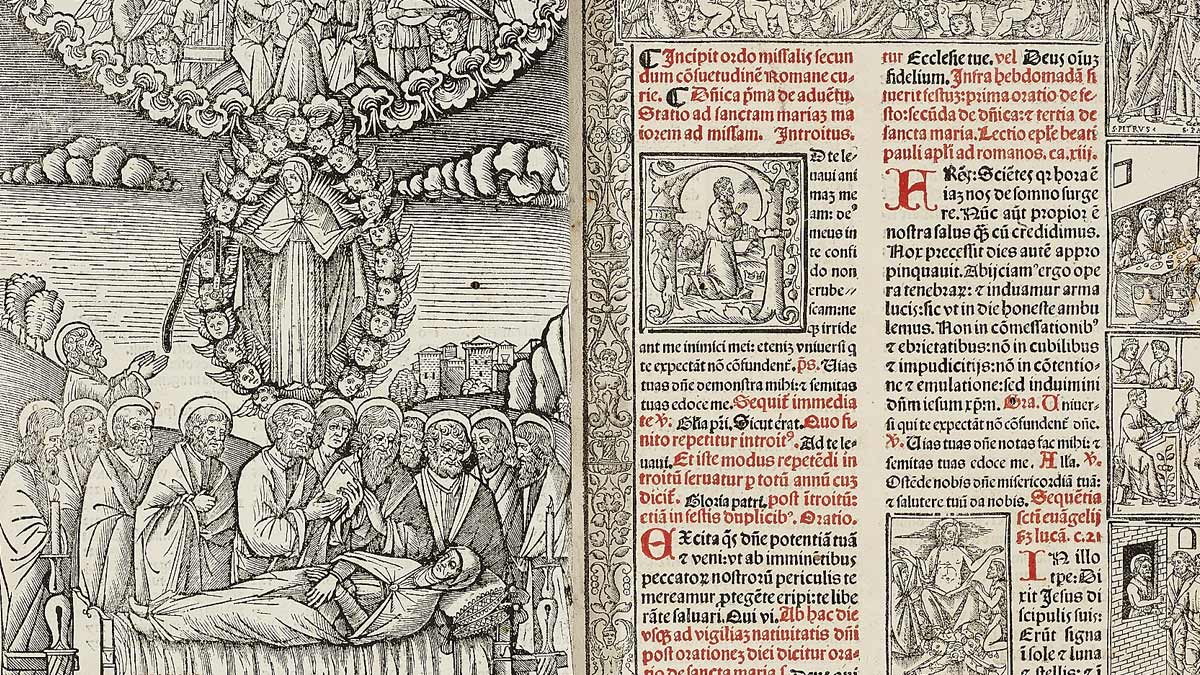 Incipit ordo missalis secun
dum cōsuetudinē Romane cu-
rie. Dn̄ica p̄ma de aduētu.
Statio ad sanctam mariaʒ ma
iorem ad missam. Introitus.
AD te le-
uaui ani
maʒ me
am: deꝰ
meus in
te confi
do non
erube//
scam: ne
qʒ irride
ant me inimici mei: eteniʒ vniuersi q
te expectāt nō cōfundent̄. p̄s. Uias
tuas dn̄e demonstra mihi: ⁊ semitas
tuas edoce me. Sequit̄ immedia
te ℣. Glīa pr̄i. Sicut erat. Quo fi-
nito repetitur introitꝰ. Ad te le-
uaui. Et iste modus repetēdi in
troitū seruatur p totū annū cuʒ
dicit̄. Gloria patri. post ītroitū:
etiā in festis duplicibꝰ. Oratio.
EXcita qs̄ dn̄e potentiā tuā
⁊ veni: vt ab imminētibus
peccatoꝝ nostroꝝ periculis te
mereamur ꝓtegēte eripi: te libe
rāte saluari. Qui vi. Ab hac die
vsqʒ ad vigiliaʒ natiuitatis dn̄i
post orationeʒ diei dicitur ora-
tio de sancta maria
tur Ecclesie tue. vel Deus oīuʒ
fidelium. Infra hebdomadā si
uerit festuʒ: prima oratio de fe-
sto: secūda de dn̄ica: ⁊ tertia de
sancta maria. Lectio epl̄e beati
pauli apl̄i ad romanos. ca. xiij.
FRēs: Sciētes qꝛ hora ē
iaʒ nos de somno surge
re. Nūc aūt propior ē
nostra salus qʒ cū credidimus.
Nox precessit dies autē appro
pinquauit. Abijciamꝰ ergo ope
ra tenebraꝝ: ⁊ induamur arma
lucis: sic vt in die honeste ambu
lemus. Non in cōmessationibꝰ
⁊ ebrietatibus: nō in cubilibus
⁊ impudicitijs: nō in cōtentio-
ne ⁊ emulatione: sed induimini
dn̄m iesum xp̄m. Gra. Uniuer-
si qui te expectāt nō cōfundent̄ dn̄e.
℣. Uias tuas dn̄e notas fac mihi: ⁊
semitas tuas edoce me. Alla. ℣.
Ostēde nobis dn̄e misericordiā tuā:
⁊ salutare tuū da nobis. Sequētia
sctī euāgelij
ſʒ lucā. c. 21
IN illo
tpe: Di
xit Jesus di
scipulis suis:
Erūt signa
ī sole ⁊ luna
⁊ stellis: ⁊ ī
S·PETRVS·